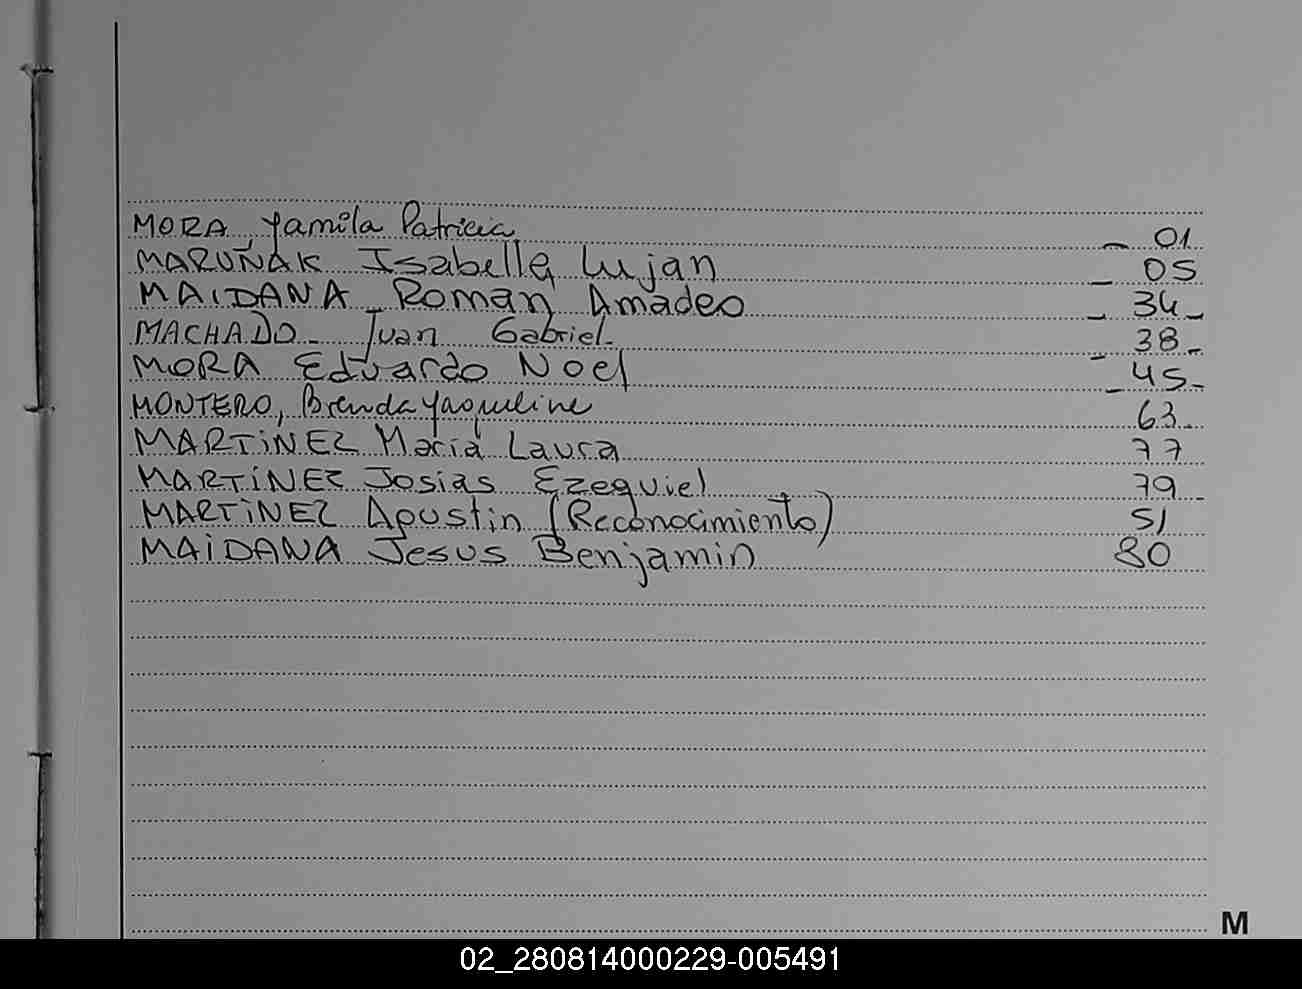 MORA, Yamila Patricia _ 01
MARUÑAK Isabella Lujan _ 05
MAIDANA Roman Amadeo _ 34_
MACHADO_ Juan Gabriel_ _ 38_
MORA Eduardo Noel _ 45_
MONTERO, Brenda Yaqueline 63_
MARTINEZ Maria Laura 77
MARTINEZ Josias Ezequiel 79_
MARTINEZ Agustin (Reconocimiento) 51
MAIDANA Jesus Benjamin 80
M
02_280814000229-005491